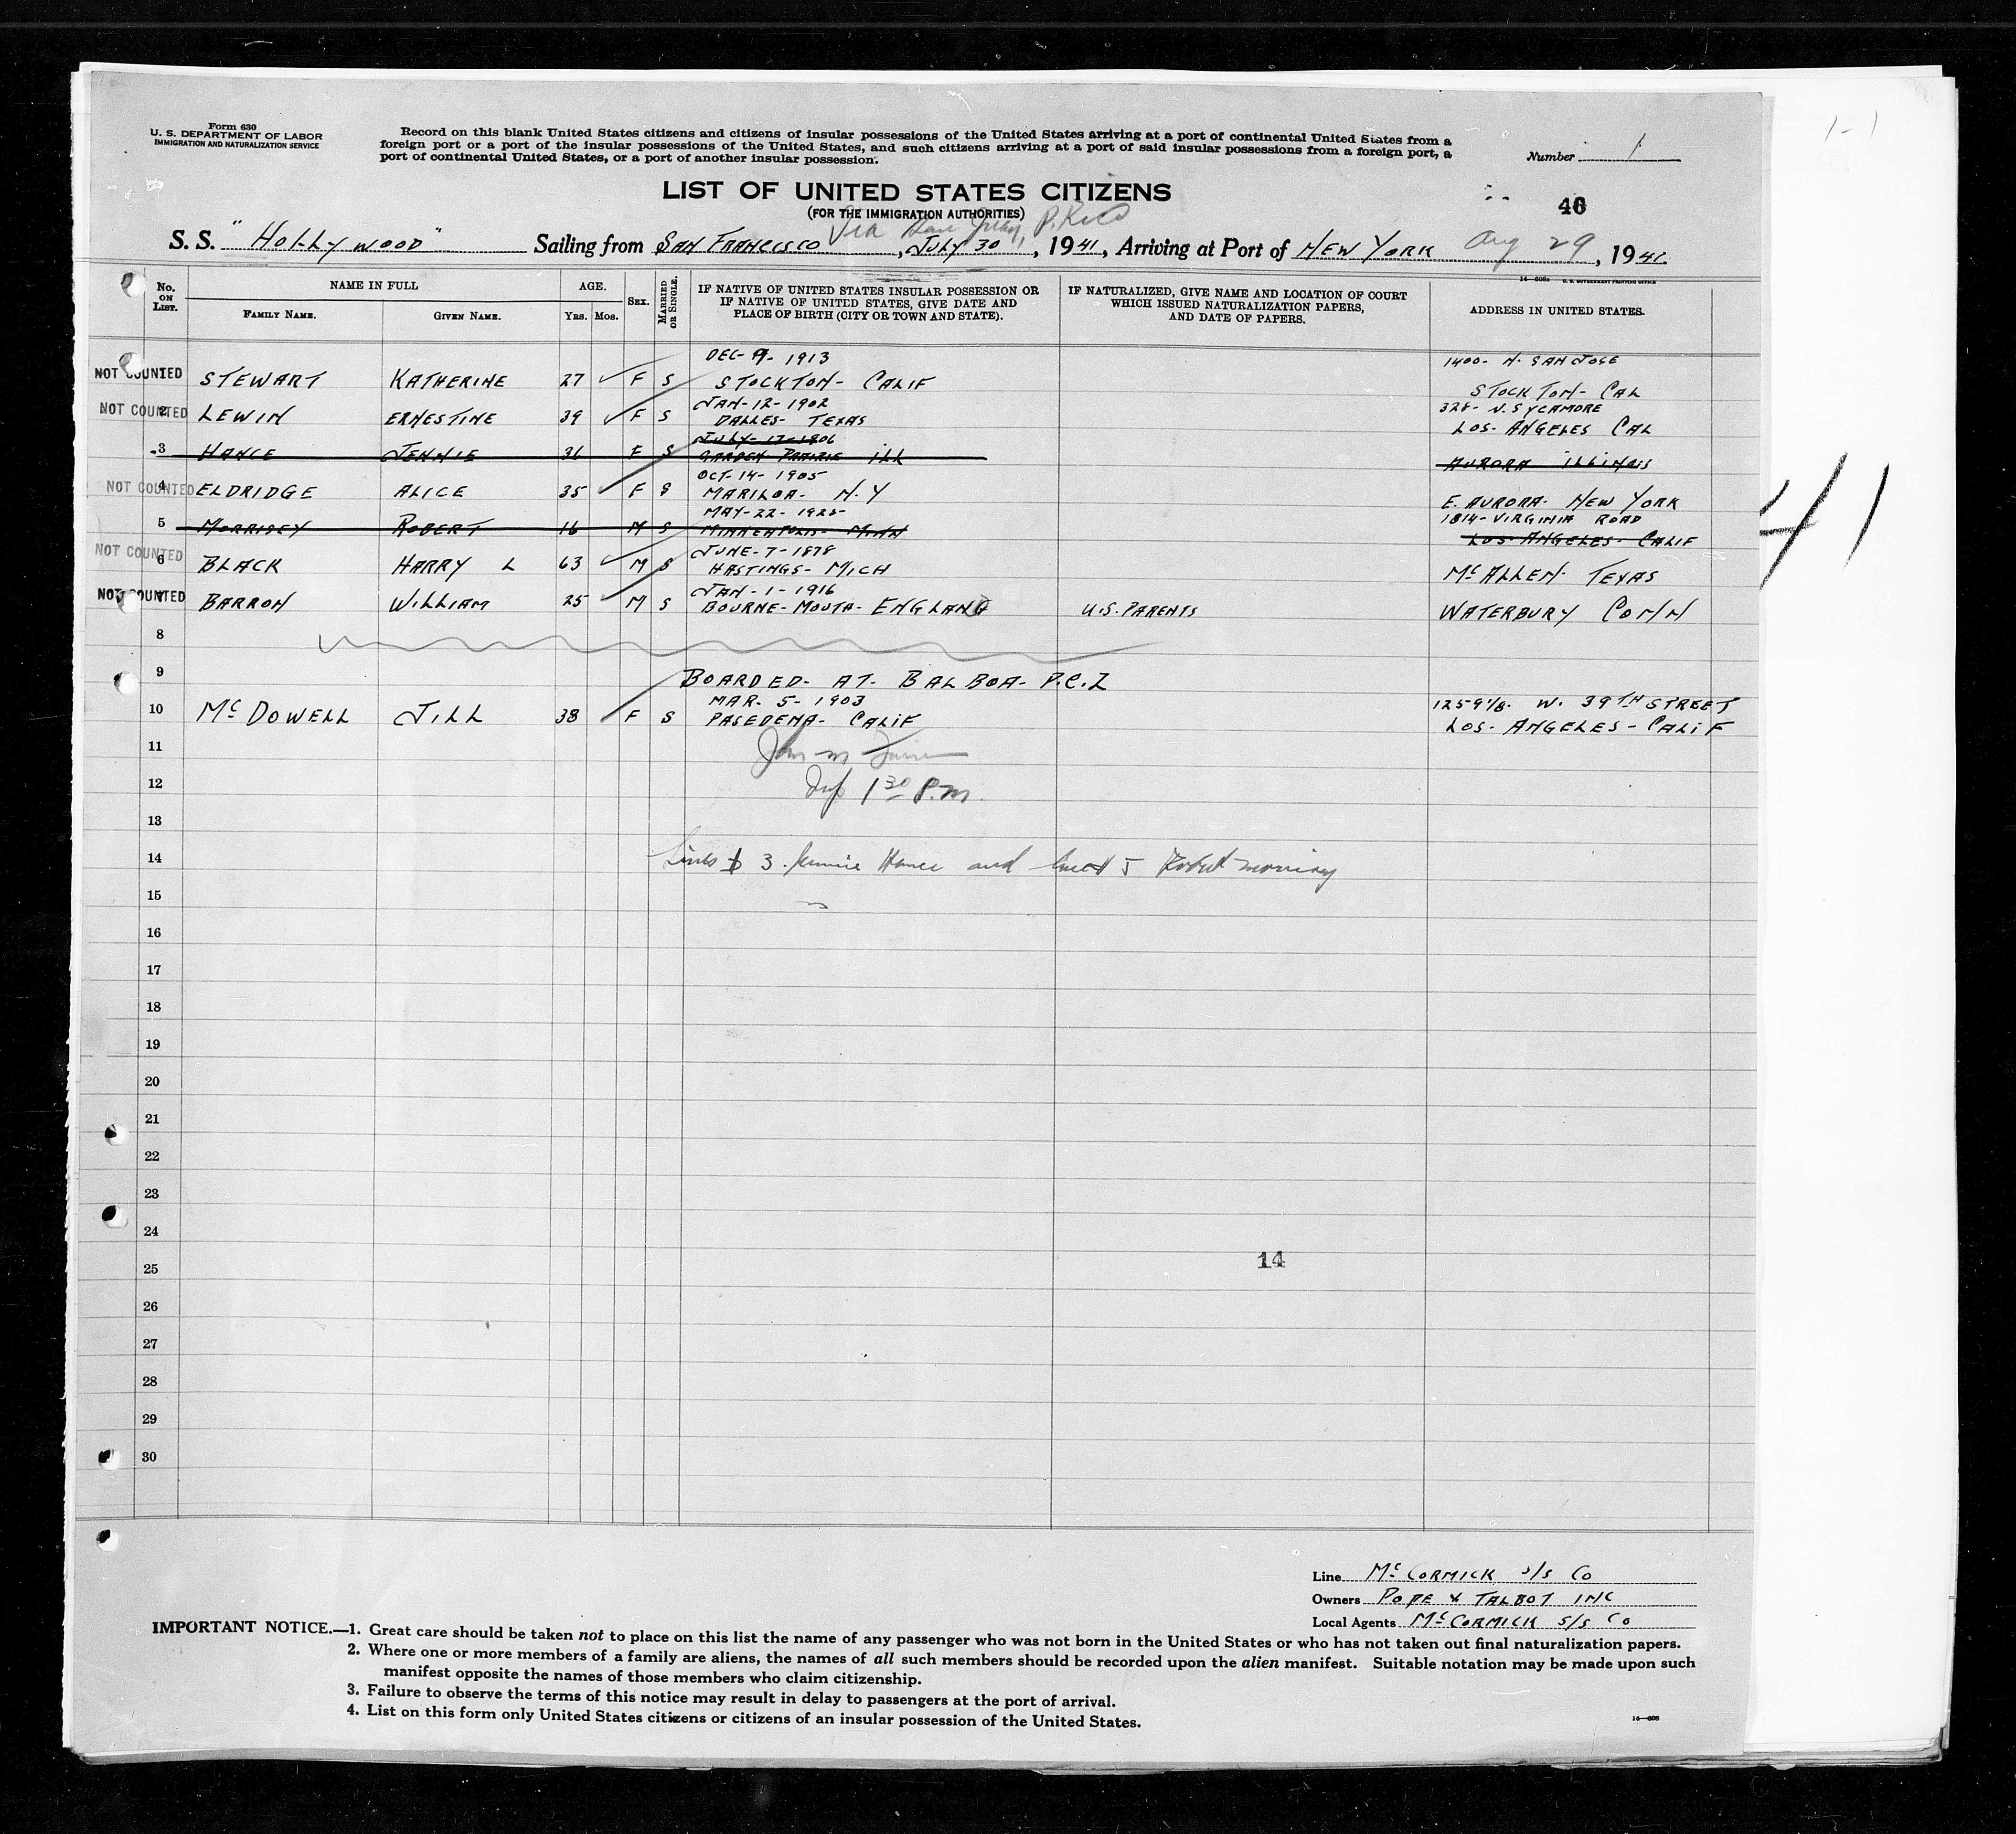 1-1
Form 630
U. S. DEPARTMENT OF LABOR
IMMIGRATION AND NATURALIZATION SERVICE
Record on this blank United States citizens and citizens of insular possessions of the United States arriving at a port of continental United States from a
foreign port or a port of the insular possessions of the United States, and such citizens arriving at a port of said insular possessions from a foreign port, a
port of continental United States, or a port of another insular possession.
Number 1
LIST OF UNITED STATES CITIZENS
(FOR THE IMMIGRATION AUTHORITIES)
Via San Juan, P. Rico
S. S. "HOLLYWOOD" Sailing from SAN FRANCISCO, JULY 30, 1941, Arriving at Port of NEW YORK Aug 29, 1941
No. ON LIST.
NAME IN FULL
FAMILY NAME. GIVEN NAME.
AGE.
YRS. MOS.
SEX.
MARRIED OR SINGLE.
IF NATIVE OF UNITED STATES INSULAR POSSESSION OR
IF NATIVE OF UNITED STATES, GIVE DATE AND
PLACE OF BIRTH (CITY OR TOWN AND STATE).
IF NATURALIZED, GIVE NAME AND LOCATION OF COURT
WHICH ISSUED NATURALIZATION PAPERS,
AND DATE OF PAPERS.
ADDRESS IN UNITED STATES.
DEC- 9- 1913 1400- N. SAN JOSE
NOT COUNTED STEWART KATHERINE 27 F S STOCKTON- CALIF STOCKTON- CAL
JAN-12-1902 328- N. SYCAMORE
NOT COUNTED 2 LEWIN ERNESTINE 39 F S DALLES- TEXAS LOS- ANGELES CAL
JULY-17-1906
3 HANCE JENNIE 31 F S GARDEN PRAIRIE ILL AURORA ILLINOIS
OCT-14-1905
NOT COUNTED 4 ELDRIDGE ALICE 35 F S MARILOA- N.Y E. AURORA- NEW YORK
MAY-22-1925 1814-VIRGINIA ROAD
5 MORRISEY ROBERT 16 M S MINNEAPOLIS- MINN LOS-ANGELES- CALIF
JUNE-7-1878
NOT COUNTED 6 BLACK HARRY L 63 M S HASTINGS- MICH McALLEN- TEXAS
JAN-1-1916
NOT COUNTED BARRON WILLIAM 25 M S BOURNE-MOUTH- ENGLAND U.S. PARENTS WATERBURY CONN
8
9 BOARDED- AT- BALBOA- P.C.Z
MAR. 5- 1903 1259 1/8- W. 39TH STREET
10 McDOWELL JILL 38 F S PASEDENA- CALIF LOS- ANGELES- CALIF
11
12 1 30 P.M.
13
14 Lines 3 Jennie Hance and line 5 Robert Morrisey
15
16
17
18
19
20
21
22
23
24
14
25
26
27
28
29
30
Line McCORMICK S/S CO
Owners POPE & TALBOT INC
Local Agents McCORMICK S/S CO
IMPORTANT NOTICE.—1. Great care should be taken not to place on this list the name of any passenger who was not born in the United States or who has not taken out final naturalization papers.
2. Where one or more members of a family are aliens, the names of all such members should be recorded upon the alien manifest. Suitable notation may be made upon such
manifest opposite the names of those members who claim citizenship.
3. Failure to observe the terms of this notice may result in delay to passengers at the port of arrival.
4. List on this form only United States citizens or citizens of an insular possession of the United States.